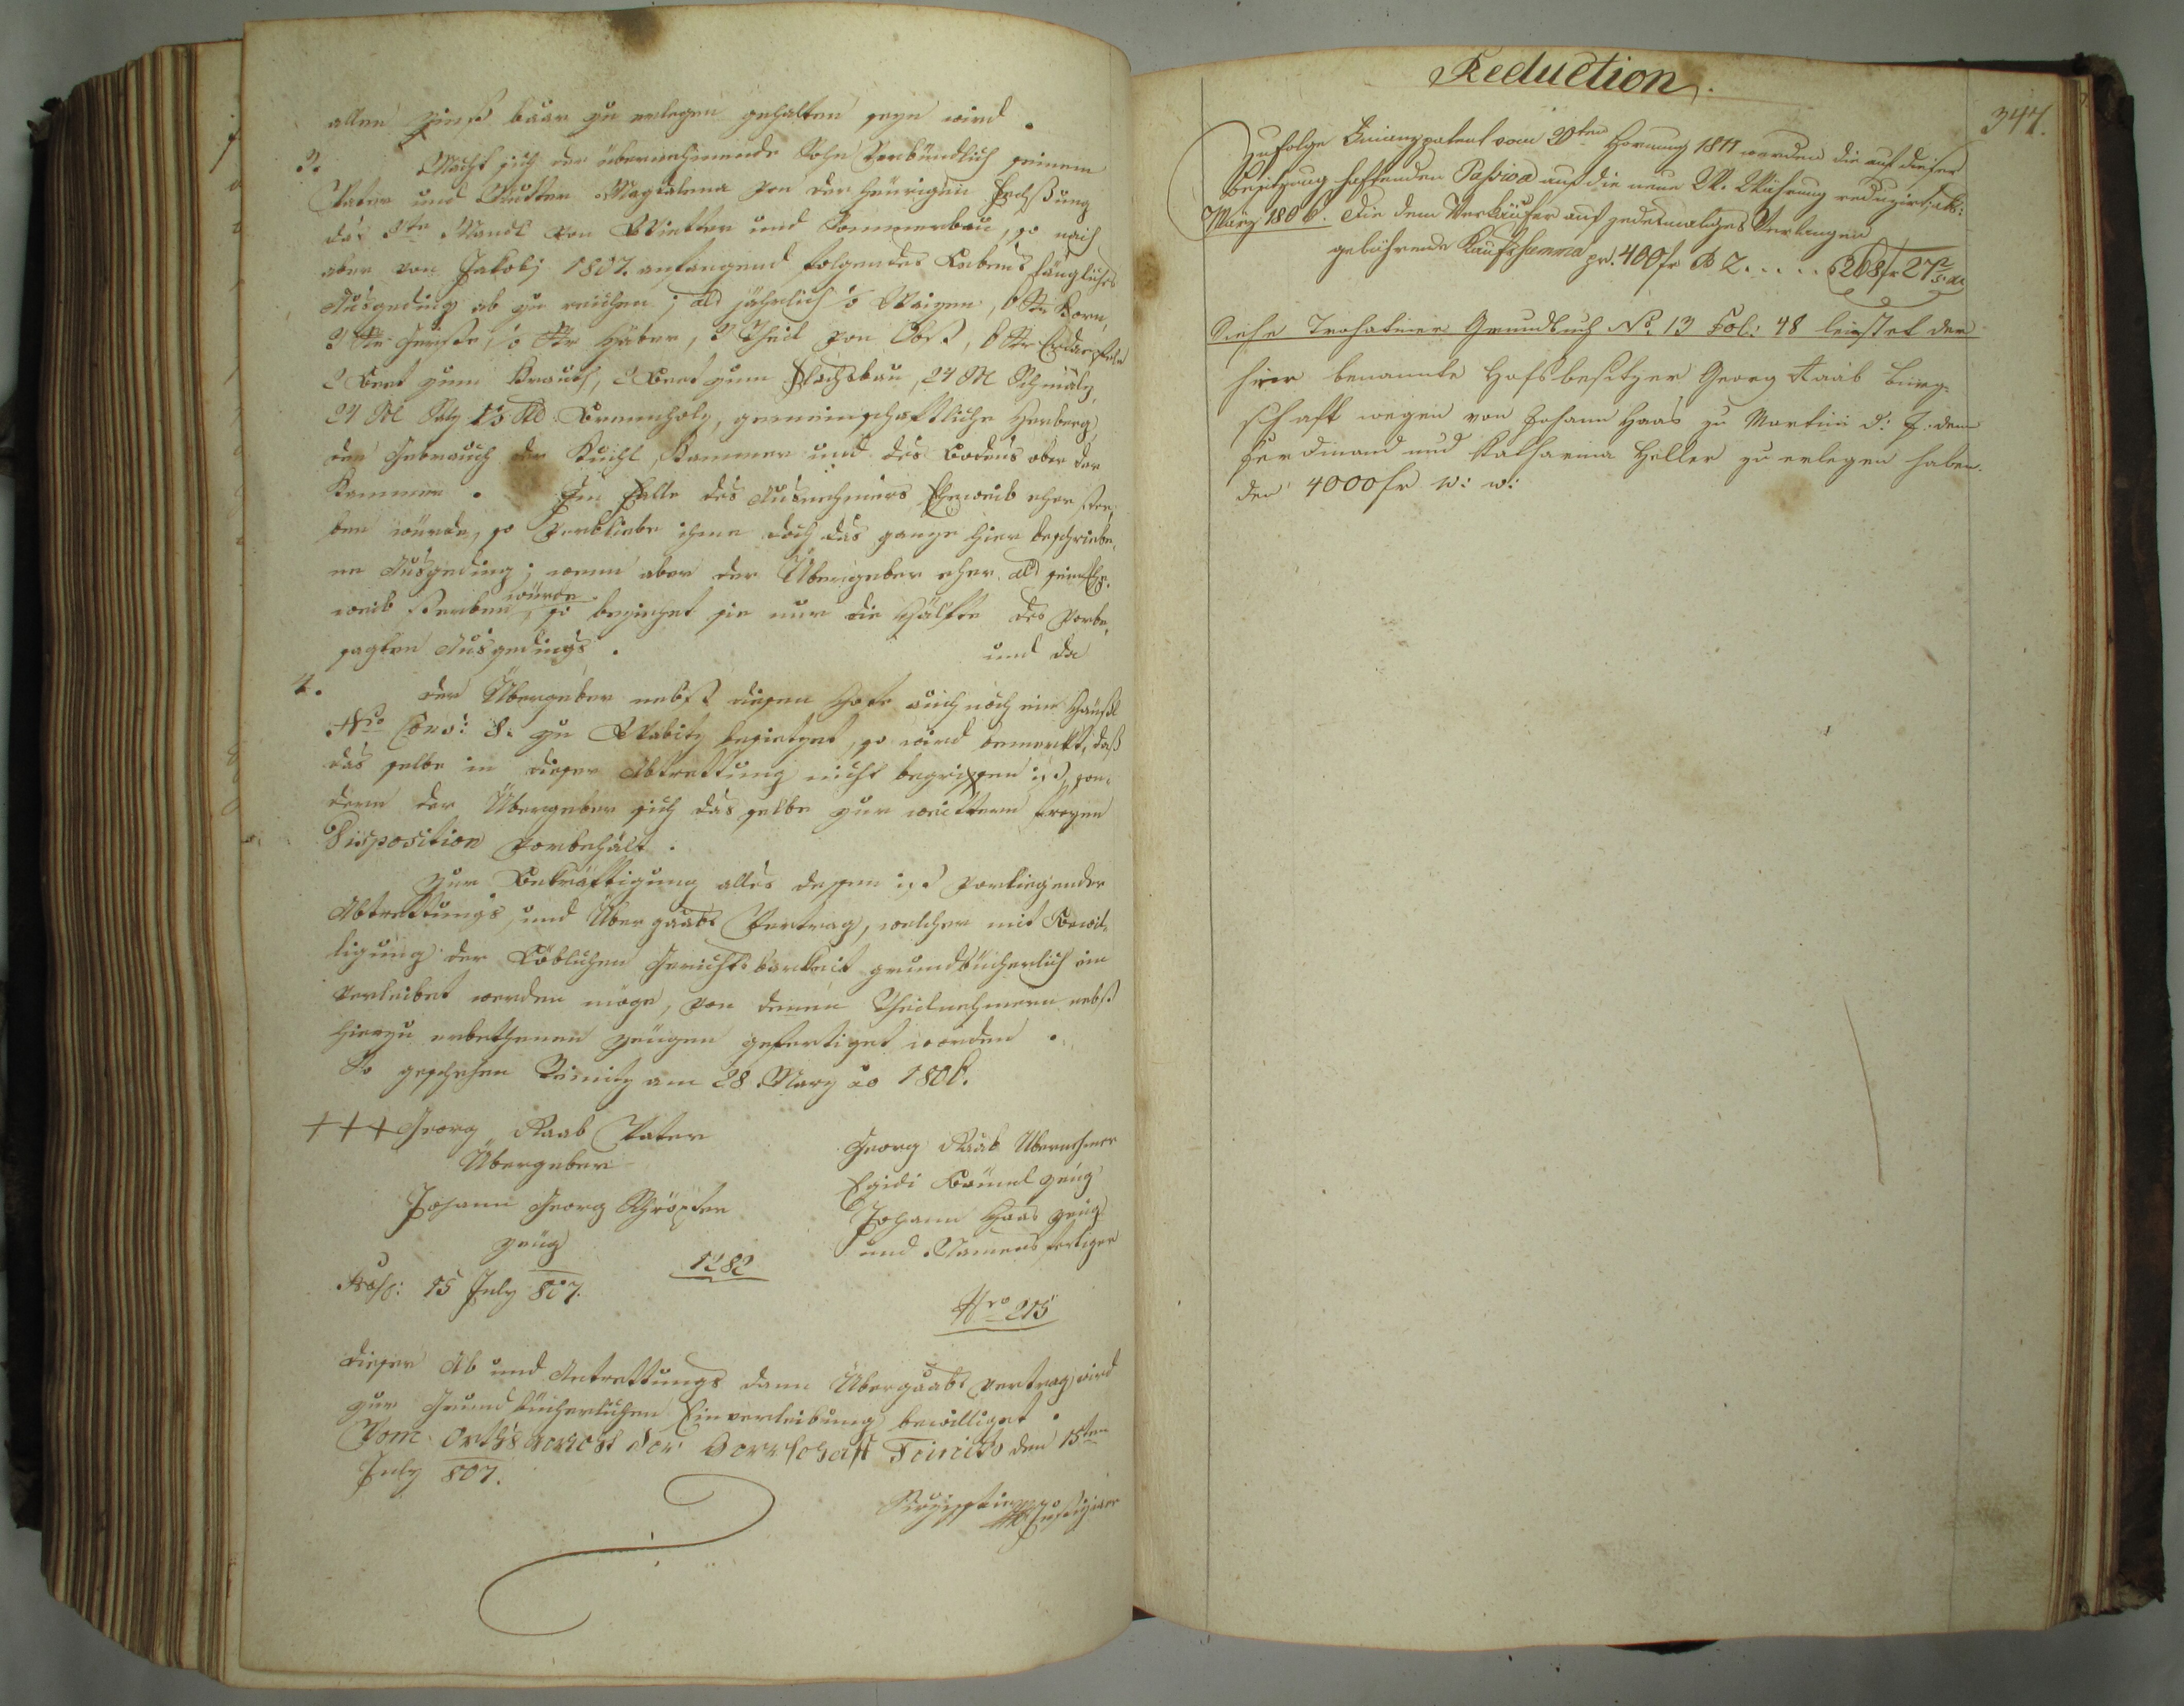 allen Zinß baar zu erlegen gehalten seyn wird.
3. Macht sich der übernehmende Sohn verbündlich seinem
Vater und Mutter Magdalena von der heürigen Fechßung
das 3te Mandl von Winter und Sommerbau, so nach
aber von Jakobj 1807. anfangend folgendes Lebenslängliches
Ausgeding ab zu reichen; als jährlich Waizen, Korn,
Gersten, Haber, Theil von Obst, Erdäpfeln
2 Beet zum Krauth, 2 Beet zum Flachsbau, 24 Schmalz,
24 Salz Brennholz, gemeinschaftliche Herberg,
den Gebrauch der Kuchl, Kammer und des Bodens ober der
Kammer. Im Falle des Ausnehmers Eheweib eher ster,
ben würde, so verbliebe ihme doch das ganze hier beschriebe,
ne Ausgeding; wenn aber der Übergeber eher als sein Ehe,
weib sterben würde, so beziehet sie nur die Hälfte des vorbe,
sagten Ausgedings.
und da
4. der Übergeber nebst diesen Hofe auch noch ein Häußl
Nro Cons: 8. zu Wabitz besietzet, so wird bemerkt, daß
das selbe in dieser Abtrettung nicht begriffen ist, son,
dern der Übergeber sich das selbe zur weittern freyen
Disposition vorbehält.
Zur Bekräftigung alles dessen ist vorliegender
Abtrettungs, und Übergaabs Vertrag, welcher mit Bewil,
ligung der Löblichen Gerichtsbarkeit grundbücherlich ein
verleibet werden möge, von denen Theilnehmern nebst
hierzu erbethenen Zeugen gefertiget worden.
So geschehen Trinitz am 28. Marz ao 1806.
+++ Georg Raab Vater
Übergeber
Georg Raab Übernehmer
Egidi Zeug
Johann Georg
Zeug
Johann Haas Zeug
und Namens fertiger
Prs: 15 July 807.
1282
Nro 215
Dieser Ab und Antrettungs dann Übergaabs Vertrag wird
zur Grundbücherlichen Einverleibung bewilliget.
Vom Orthsgericht der Herrschaft den 15ten
July 807.
Reduction.
347.
Zufolge Finanzpatent vom 20ten Hornung 1811 werden die auf dieser
Besitzung haftenden Passiva auf die neue W. Währung reduzirt, als:
März 1806. Die dem Verkäufer auf jedesmaliges Verlangen
gebührende Kaufssumma pr. 400 fr B Z..... 268 fr 27 2/5 xr
Siehe Grundbuch No. 13 Fol: 48 leistet der
hier benannte Hofsbesitzer Georg Raab Bürg,
schaft wegen von Johann Haas zu Martini d: J. dem
Ferdinand und Katharina Heller zu erlegen haben,
den 4000 fr W: W: